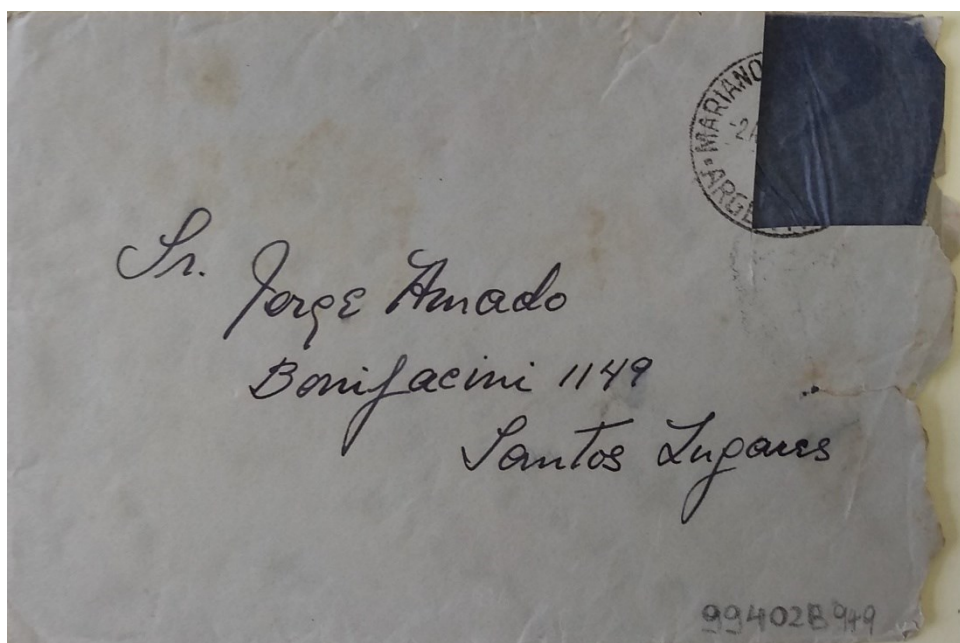 MARIANO
ARGE
Sr. Jorge Amado
Bonifacini 1149
Santos Lugares